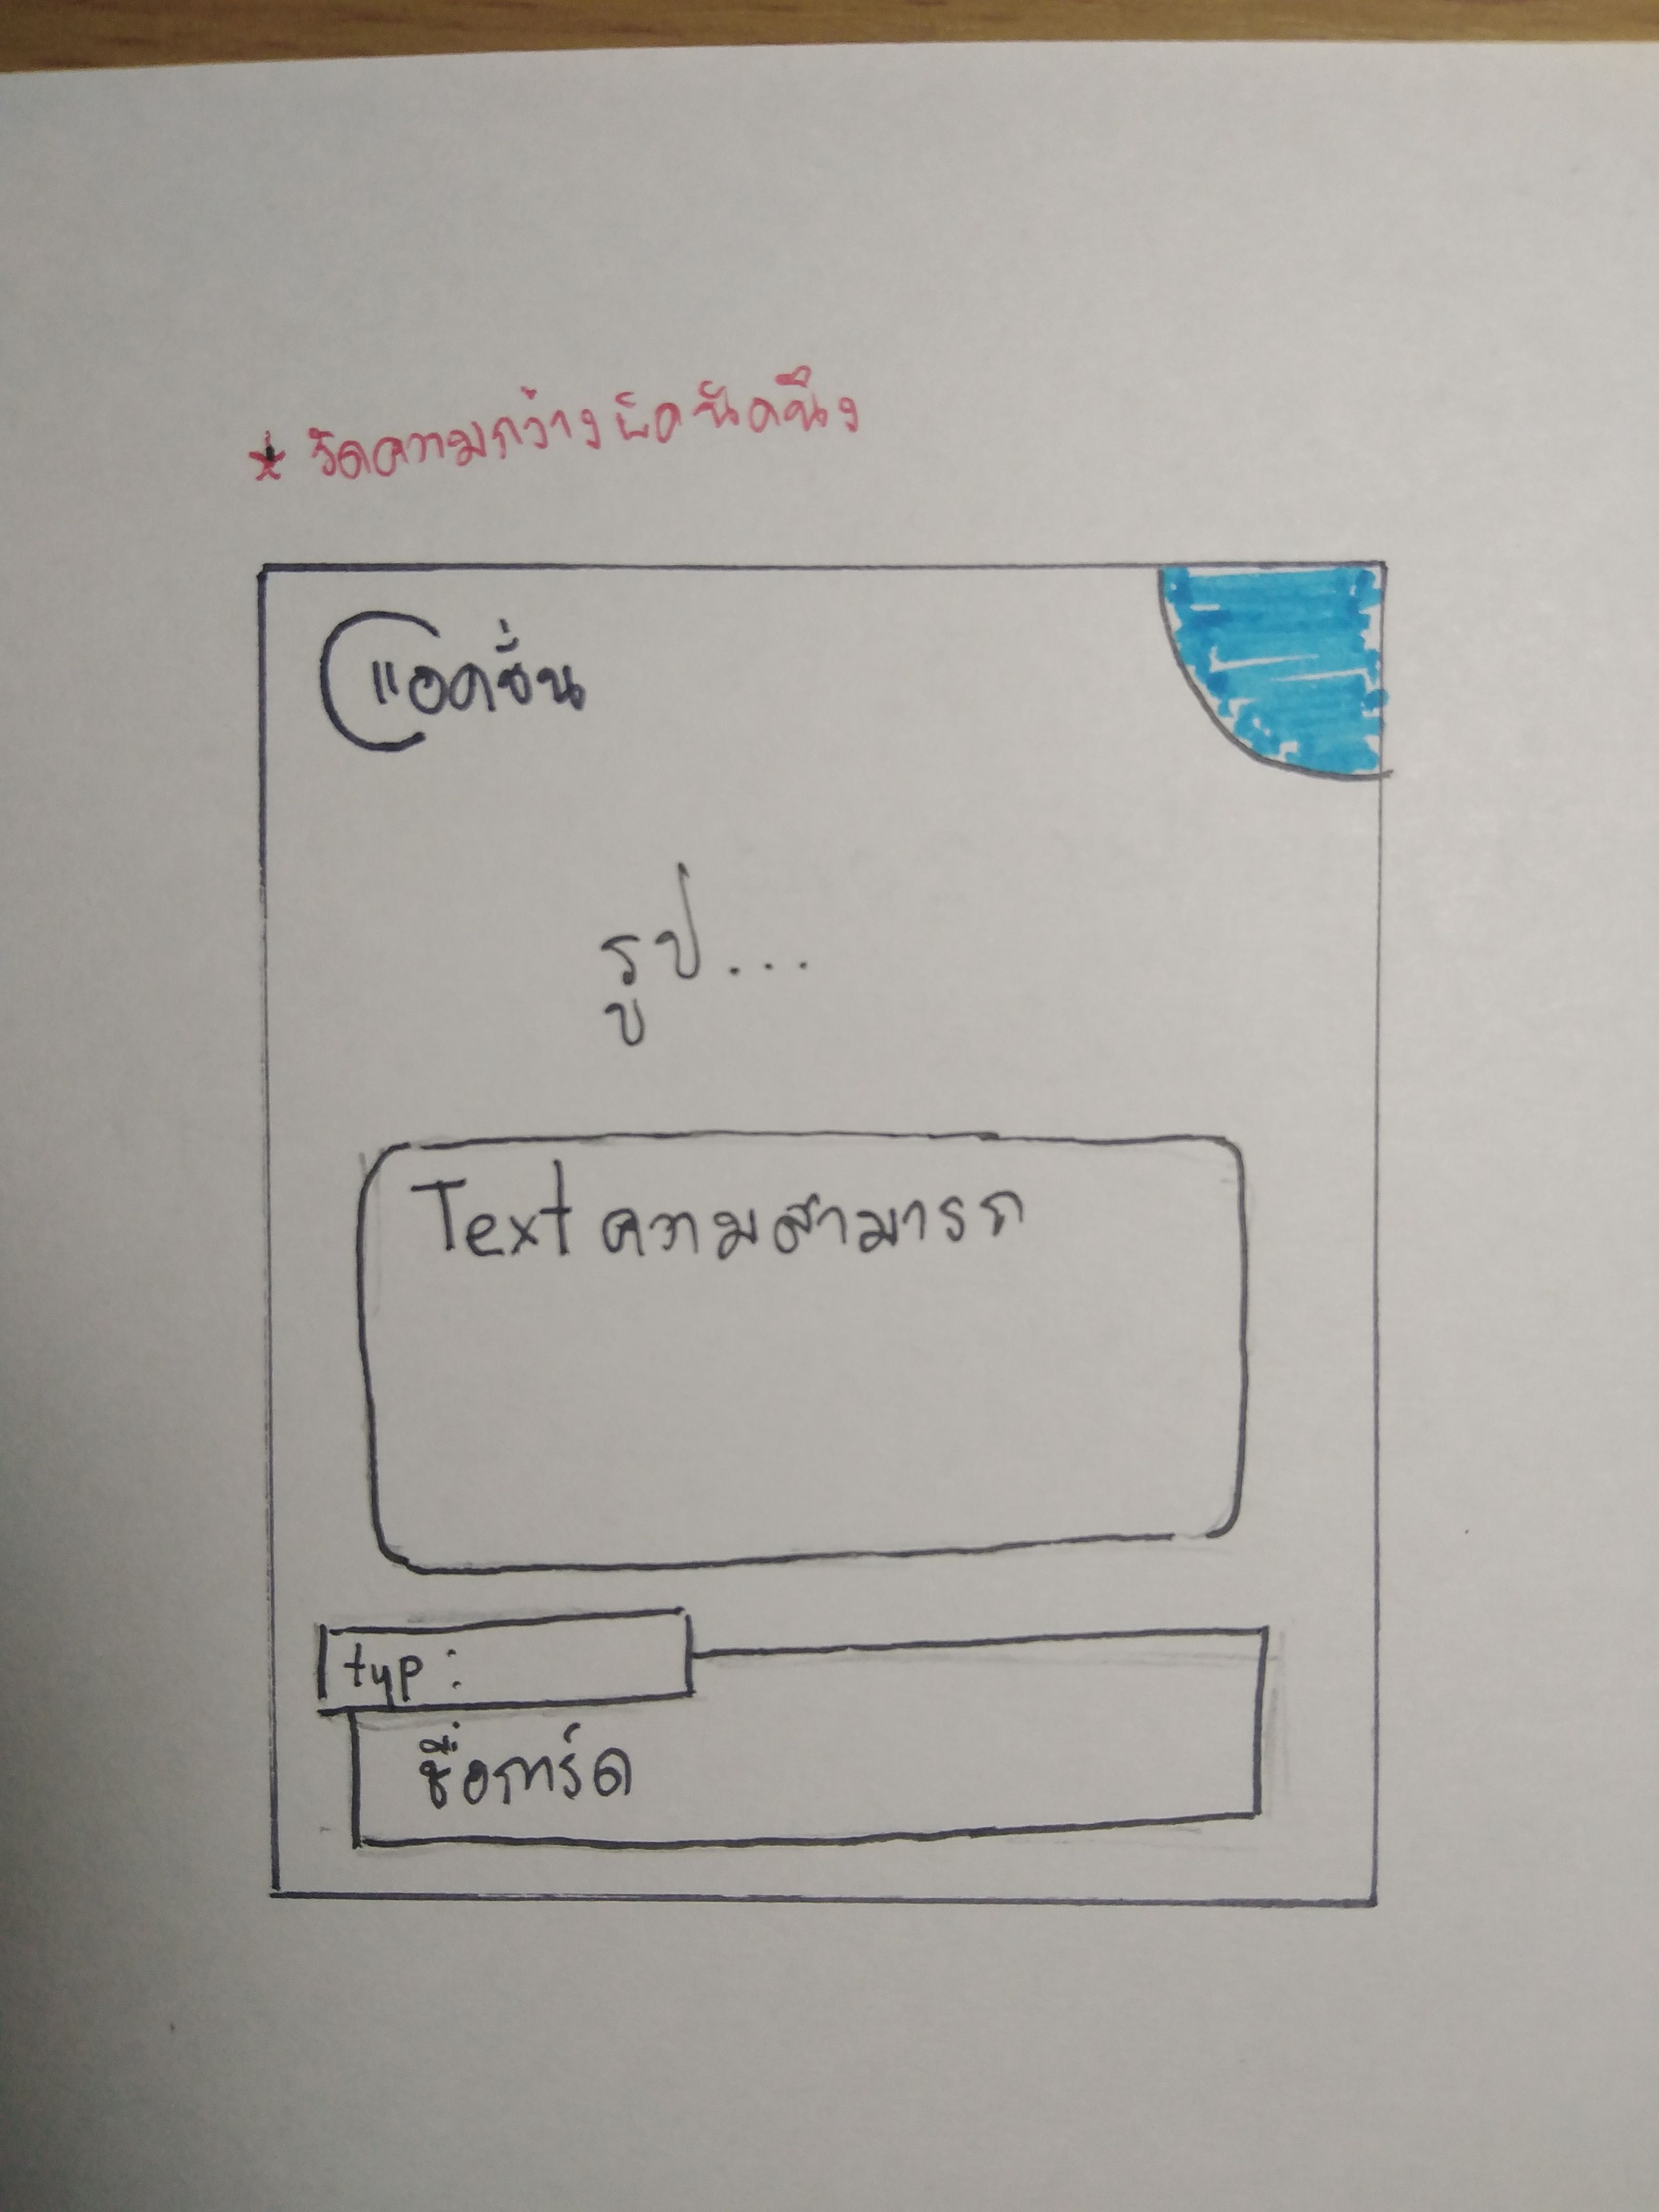 * วัดความกว้างผิดนิดนึง
แอคชั่น
รูป...
Text ความสามารถ
typ:
ชื่อการ์ด